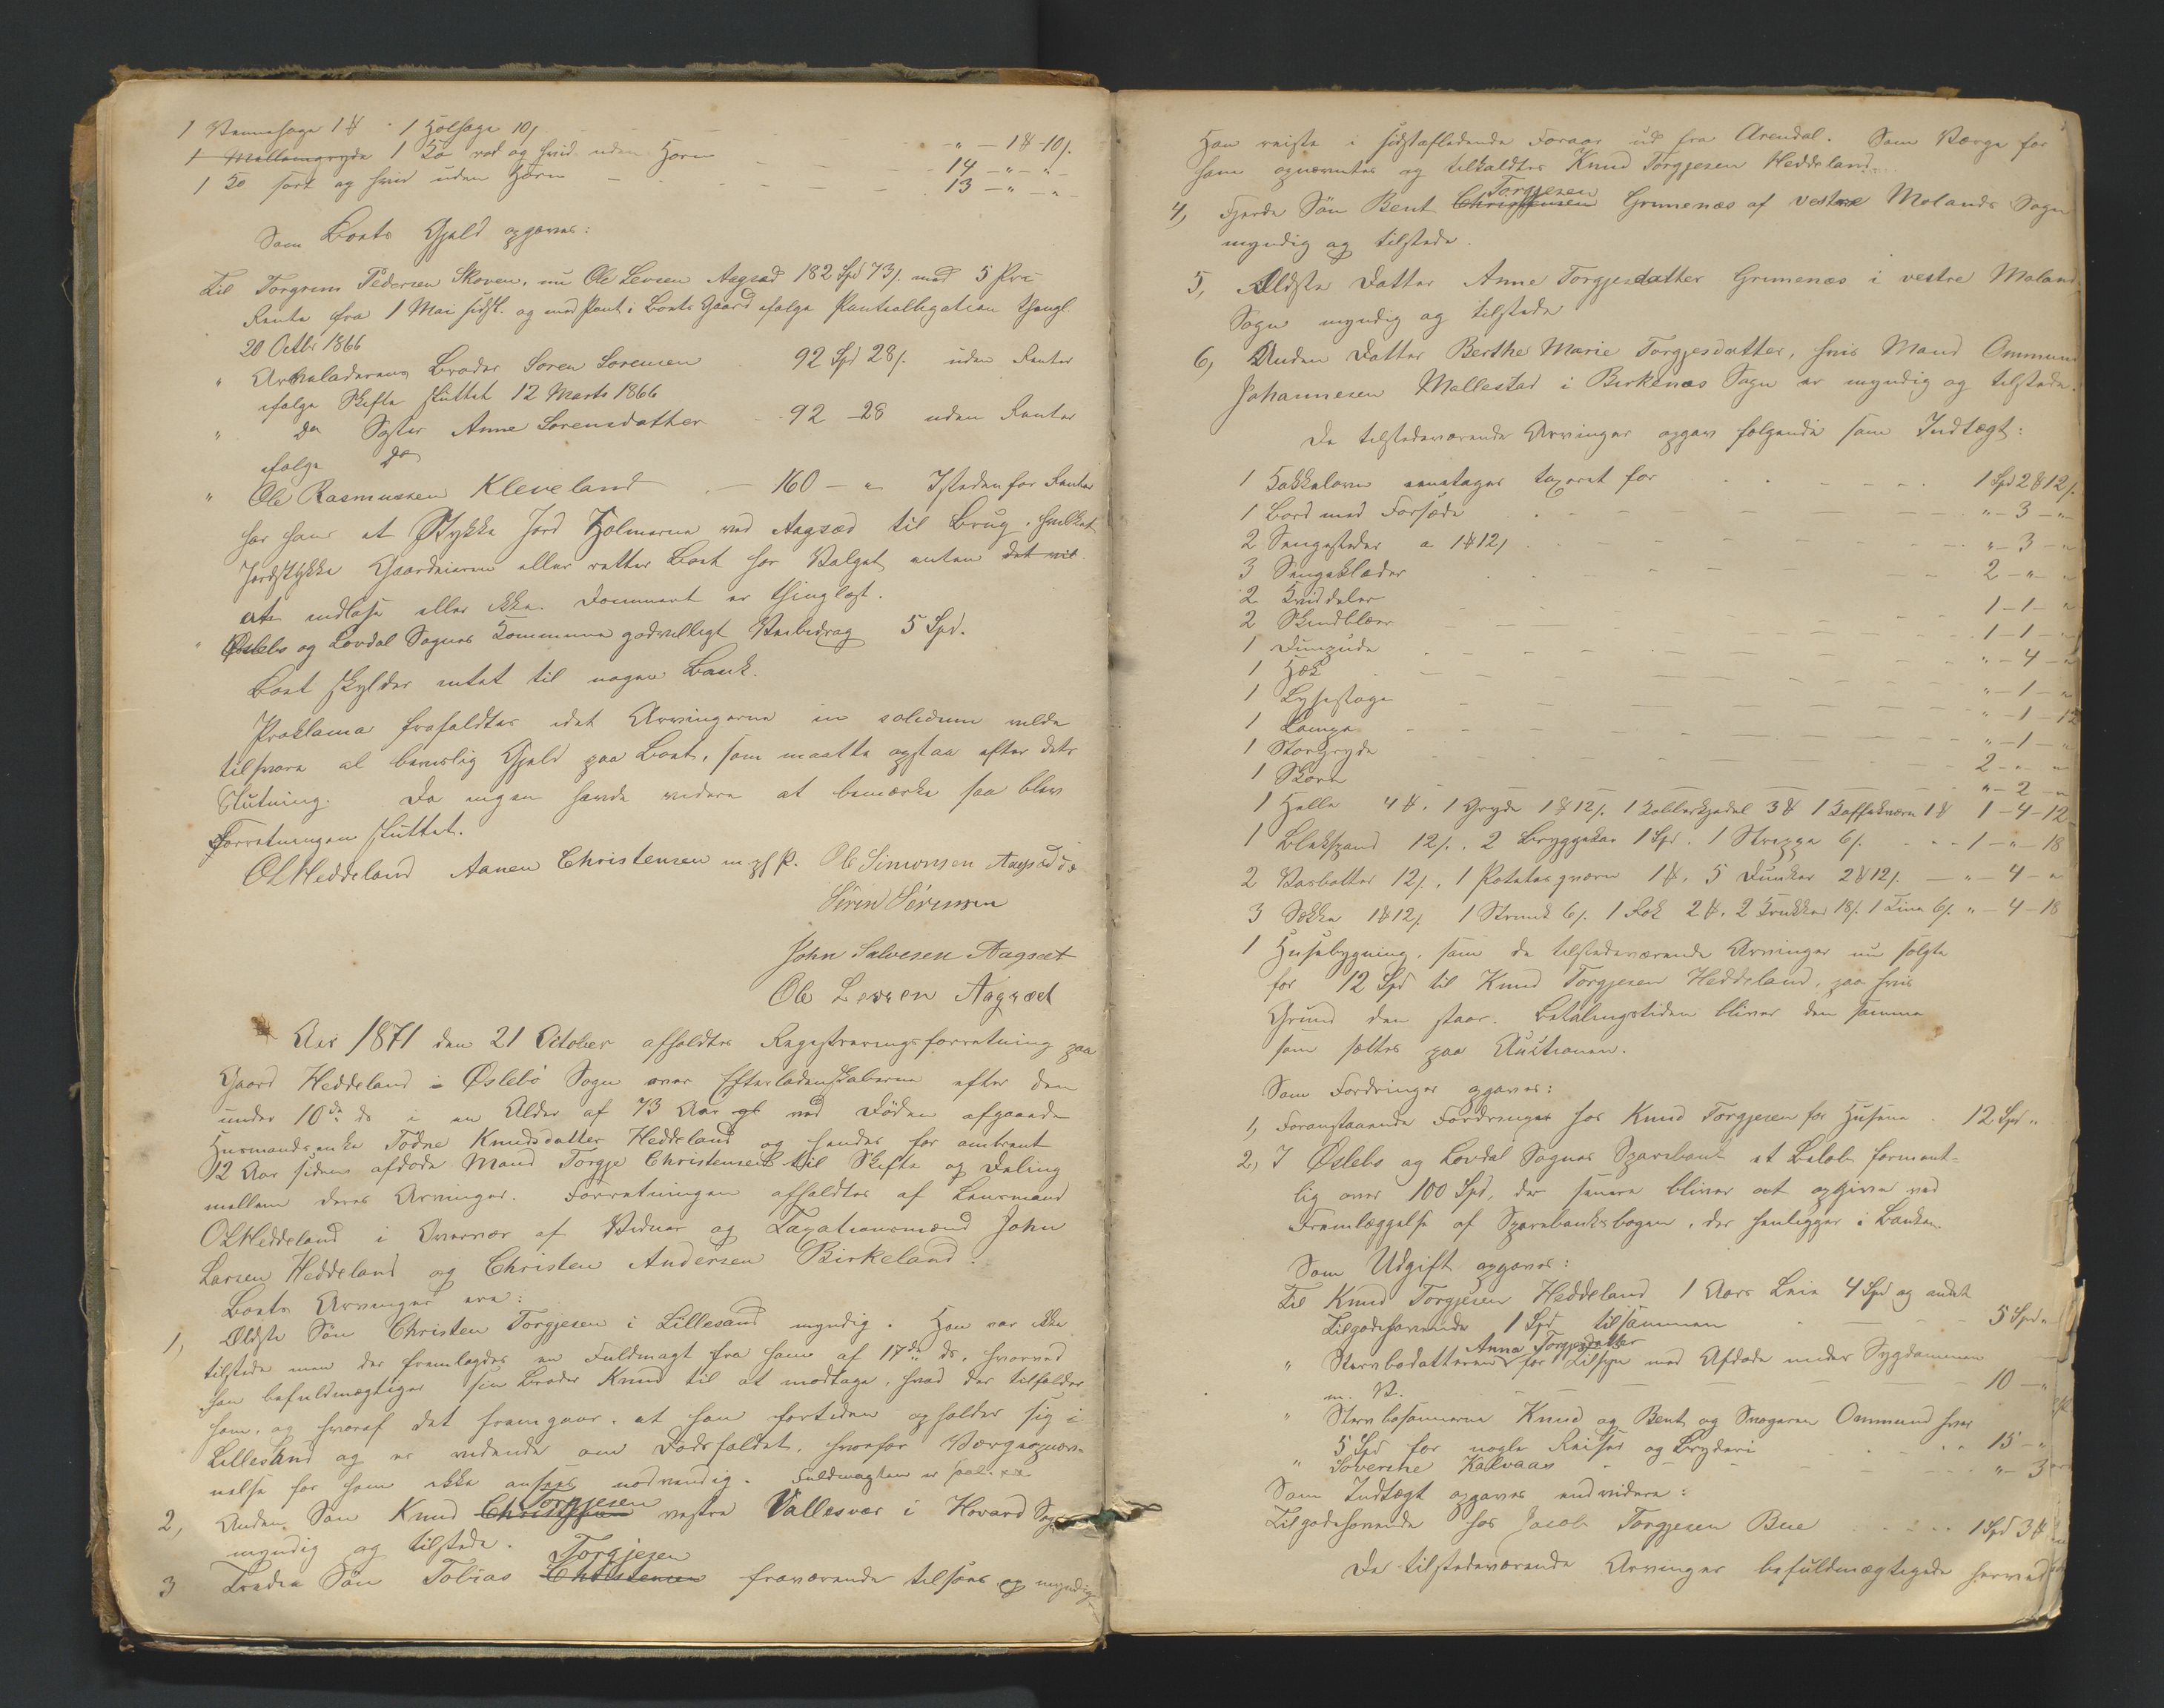 1 Vannesage 1 ort - 1 Holsage 10/ - " - 1 ort 10/.
1 Mellemgryde 1 Ko rød og hvid uden Horn - - 14 - " - "
1 Ko sort og hvid uden Horn - - - - 13 - " - "
Som Boets Gjeld opgaves:
Til Torgrim Pedersen Skoven, nu Ole Levsen Aagsæd 182 Spd 73/. med 5 Prc
Rente fra 1 Mai sidstl. og med Pant i Boets Gaard ifølge Pantobligation thingl.
20 Octbr 1866
" Arveladerens Broder Søren Sørensen 92 Spd 28/. uden Renter
ifølge Skifte sluttet 12 Marts 1866
" Do Søster Anne Sørensdatter - 92 - 28 uden Renter
ifølge Do
" Ole Rasmussen Kleveland - 160 - " Istedenfor Renter
har han et Stykke Jord Holmerne ved Aagsæd til Brug, hvilket
Jordstykke Gaardeieren eller rettere Boet har Valget enten det vil
at indløse eller ikke. Document er thinglæst.
" Øslebø og Løvdal Sognes Kommune godvilligt Veibidrag 5 Spd.
Boet skylder intet til nogen Bank.
Proklama frafaldtes idet Arvingerne in solidum vilde
tilsvare al beviislig Gjeld paa Boet, som maatte opstaa efter dets
Slutning. Da ingen havde videre at bemærke saa blev
Forretningen sluttet.
OLHeddeland Aanen Christensen m.p.P. Ole Simonsen Aagsæd do
Sören Sörensen
John Salvesen Aagsæt
Ole Levsen Aagsæt
Aar 1871 den 21 October afholdtes Registreringsforretning paa
Gaard Heddeland i Øslebö Sogn over Efterladenskaberne efter den
under 10de ds i en Alder af 73 Aar gl ved Döden afgaaede
Husmandsenke Tödne Knudsdatter Heddeland og hendes for omtrent
12 Aar siden afdöde Mand Torgje Christensen til Skifte og Deling
mellem deres Arvinger. Forretningen afholdtes af Lensmand
OLHeddeland i Overvær af Vidner og Taxationsmænd John
Larsen Heddeland og Christen Andersen Birkeland.
Boets Arvinger ere:
1, Ældste Søn Christen Torgjesen i Lillesand myndig. Han var ikke
tilstede men der fremlagdes en Fuldmagt fra ham af 17de ds, hvorved
han befuldmægtiger sin Broder Knud til at modtage, hvad der tilfalder
ham, og hvoraf det fremgaar, at han fortiden opholder sig i
Lillesand og er vidende om Dödsfaldet, hvorfor Værgeopnæv-
nelse for ham ikke ansees nödvendig. Fuldmagten er
2, Anden Søn Knud Christensen Torgjesen vestre Vallesvær i Hövaag Sogn
myndig og tilstede.
3 Tredie Søn Tobias Christensen Torgjesen fraværende tilsøes og myndig
Han reiste i sidstafledende Foraar ud fra Arendal. Som Værge for
ham opnævntes og tilkaldtes Knud Torgjesen Heddeland.
4, Fjerde Søn Bent Christensen Torgjesen Grimenæs af vestre Molands Sogn
myndig og tilstede.
5, Ældste Datter Anne Torgjesdatter Grimenæs i vestre Moland
Sogn myndig og tilstede
6, Anden Datter Berthe Marie Torgjesdatter, hvis Mand Ommund
Johannesen Mollestad i Birkenæs Sogn er myndig og tilstede.
De tilstedeværende Arvinger opgav følgende som Indtægt:
1 Kakkelovn eenetages taxeret for - - 1 Spd 2 ort 12/.
1 Bord med Forsæde - - " - 3 - "
2 Sengesteder a 1 ort 12/ - - " - 3 - "
3 Sengeklæder - - 2 - " - "
2 Hviddeler - - 1 - 1 - "
2 Skindblær - - 1 - 1 - "
1 Dunpude - - " - 4 - "
1 - - " - 1 - "
1 Lysestage - - " - 1 - 12
1 Lampe - - " - 1 - "
1 Storgryde - - 2 - " - "
1 - - " - 2 - "
1 Helle 4 ort, 1 Gryde 1 ort 12/. 1 Kobberkjedel 3 ort 1 Kaffekværn 1 ort 1 - 4 - 12
1 Blikspand 12/., 2 Bryggekar 1 Spd. 1 Strippe 6/. - - 1 - " - 18
2 Vasbøtter 12/., 1 Potetesqværn 1 ort, 5 Dunker 2 ort 12/. - " - 4 - "
3 Sække 1 ort 12/. 1 6/. 1 Rok 2 ort, 2 Krukker 18/. 1 Tine 6/. " - 4 - 18
1 Husebygning, som de tilstedeværende Arvinger nu solgte
for 12 Spd til Knud Torgjesen Heddeland, paa hvis
Grund den staar. Betalingstiden bliver den samme
som sættes paa Auctionen.
Som Fordringer opgaves:
1, Foranstaaende Fordringer hos Knud Torgjesen for Husene - 12 Spd "
2, I Øslebø og Løvdal Sognes Sparebank et Beløb forment-
lig over 100 Spd, der senere bliver at opgive ved
Fremlæggelse af Sparebanksbogen, der henligger i Banken.
Som Udgift opgaves:
Til Knud Torgjesen Heddeland 1 Aars Leie 4 Spd og andet
Tilgodehavende 1 Spd tilsammen - - 5 Spd "
" Stervbodatteren Anne Torgjesdatter for Tilsyn med Afdøde under Sygdommen
m. V. - - 10 - "
" Stervbosønnerne Knud og Bent og Svogeren Ommund hver
5 Spd for nogle Reiser og Bryderi - - 15 - "
" Severine Kalvaas - - " - 3
Som Indtægt opgaves endvidere:
Tilgodehavende hos Jacob Torgjesen Bue - - 1 Spd 3 ort
De tilstedeværende Arvinger befuldmægtigede herved